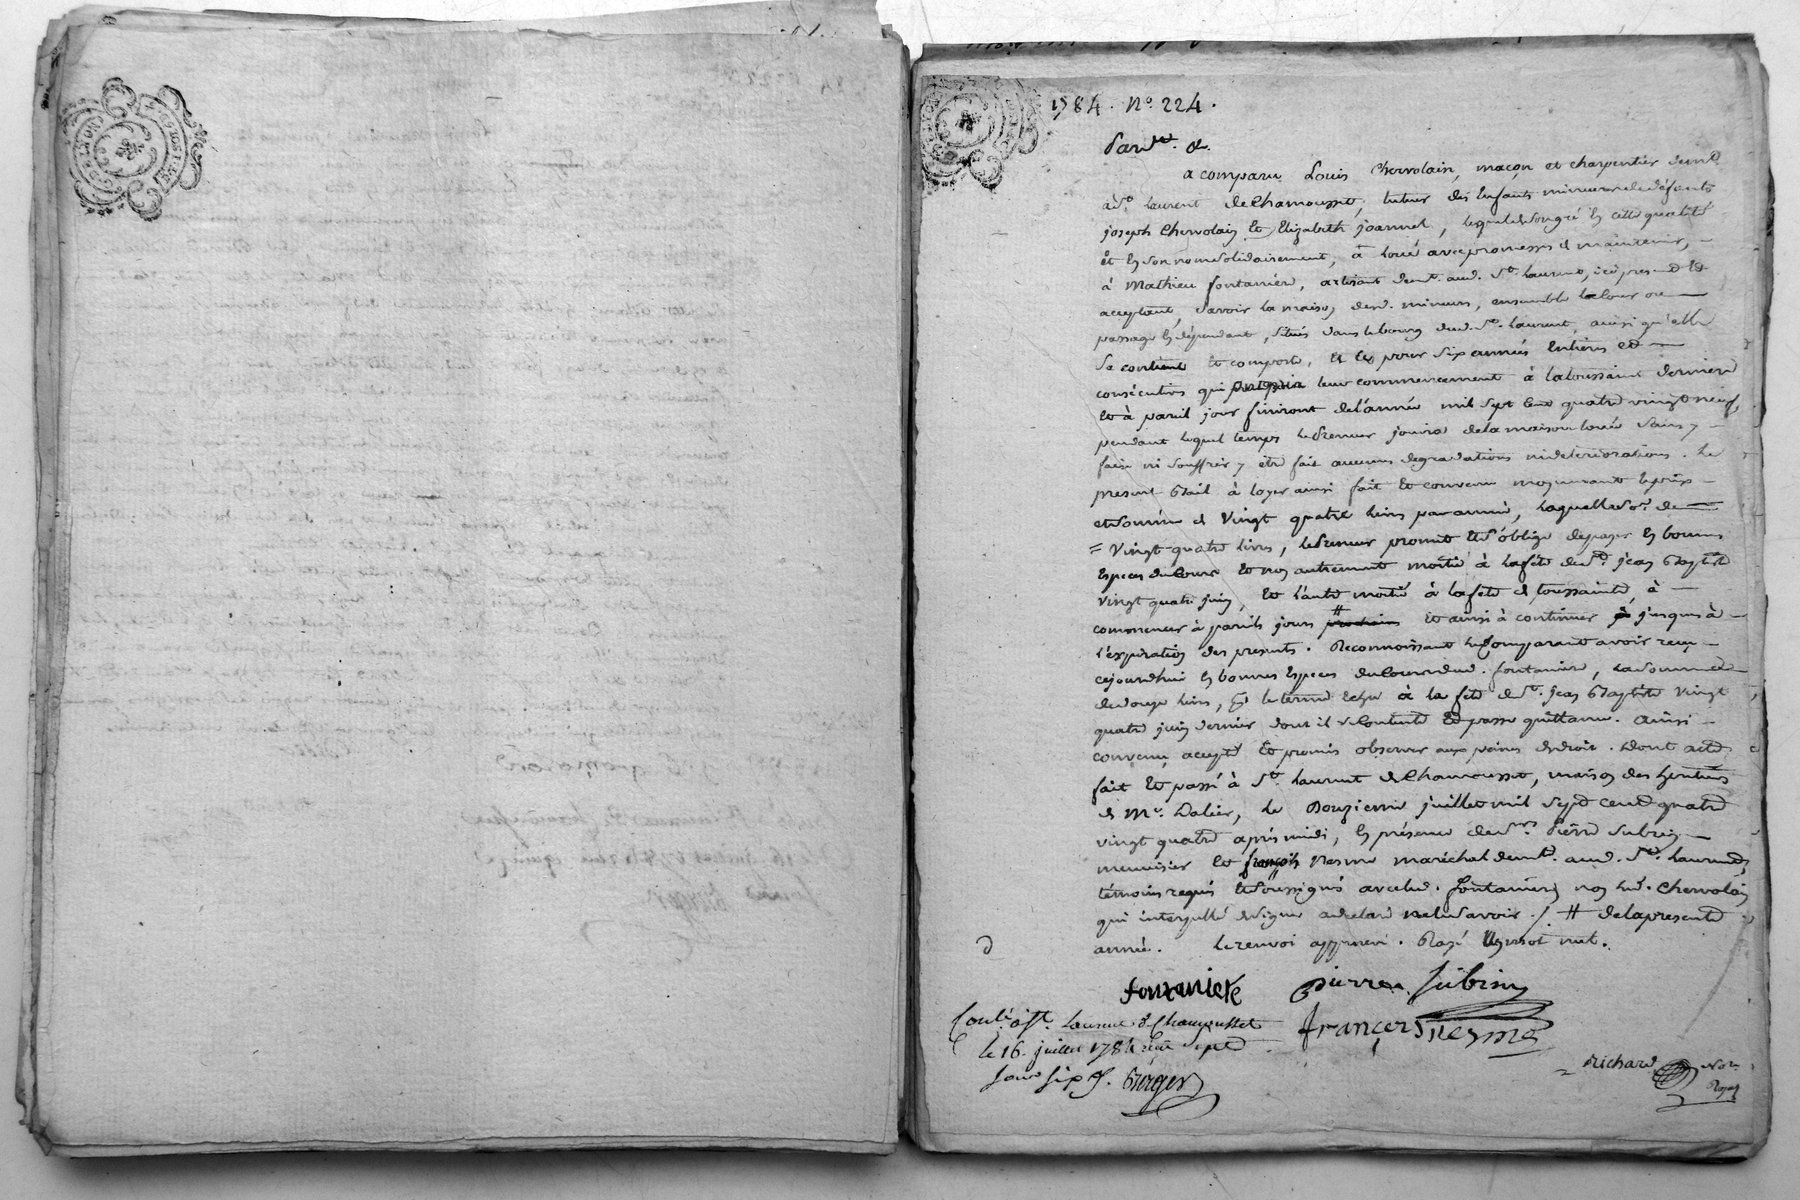 1784. N° 224.
Pardt. &.
a comparu Louis Chervolain, maçon et charpentier demt.
à St. Laurent de Chamousset, tuteur des Enfants mineurs de défunts
joseph Chervolain Et Elizabeth joannet, lequel de son gré En cette qualité
Et En son nom solidairement, à Loué avec promesses de maintenir,
à Mathieu fontanière, artisant demt. aud. St. Laurent, icy present Et
acceptant, savoir la maison desd. mineurs, ensemble la Cour ou
passage En dépendant, situés dans le bourg dud. St. Laurent, ainsi qu'elle
Se contient Et comporte, Et Ce pour six années Entières et
consécutives qui ont pris leur commencement à la toussaint dernière
Et à pareil jour finiront de l'année mil sept Cent quatre vingt neuf,
pendant lequel temps le preneur jouira de la maison louée sans y
faire ni souffrir y être fait aucunes degradations ni deteriorations. Le
present Bail à loyer ainsi fait Et convenu moyennant le prix
et somme de Vingt quatre livres par année, laquelle so.e de
= Vingt-quatre livres, le preneur promet Et s'oblige de payer En bonnes
Especes du Cours Et non autrement moitié à la fête de St. jean Baptiste
vingt quatre juin, Et l'autre moitié à la fête de toussaint, à
commencer à pareils jours prochains # Et ainsi à continuer jusques à
l'expiration des presents. Reconnoissant le Comparant avoir reçu
cejourdhui En bonnes Especes du Cours dud. fontaniere, la somme
de douze livres, pr. le terme Echu à la fête de St. jean Baptiste vingt
quatre juin dernier dont il se Contente Et passe quittance. Ainsi
convenu, accepté Et promis observer aux peines de droit. Dont acte
fait Et passé à St. Laurent de Chamousset, maison des heritiers
de Mr. Dalier, le Douzieme juillet mil sept cent quatre
vingt quatre après midi, En présence de srs. Pierre Subrin
menuisier Et françois Nesme maréchal demt. aud. St. Laurent,
témoins requis Et soussignés avec led. fontaniere, non led. Chervolain
qui interpellé de signer a declaré ne le savoir./ # de la presente
année. Le renvoi approuvé. Rayé Un mot nul.
fontaniere Pierre Subrin
françois nesme
Conlé. à St. Laurent de Chamousset
le 16. juillet 1784 reçu sept
sous six d. Berger
Richard Nore.
Royal